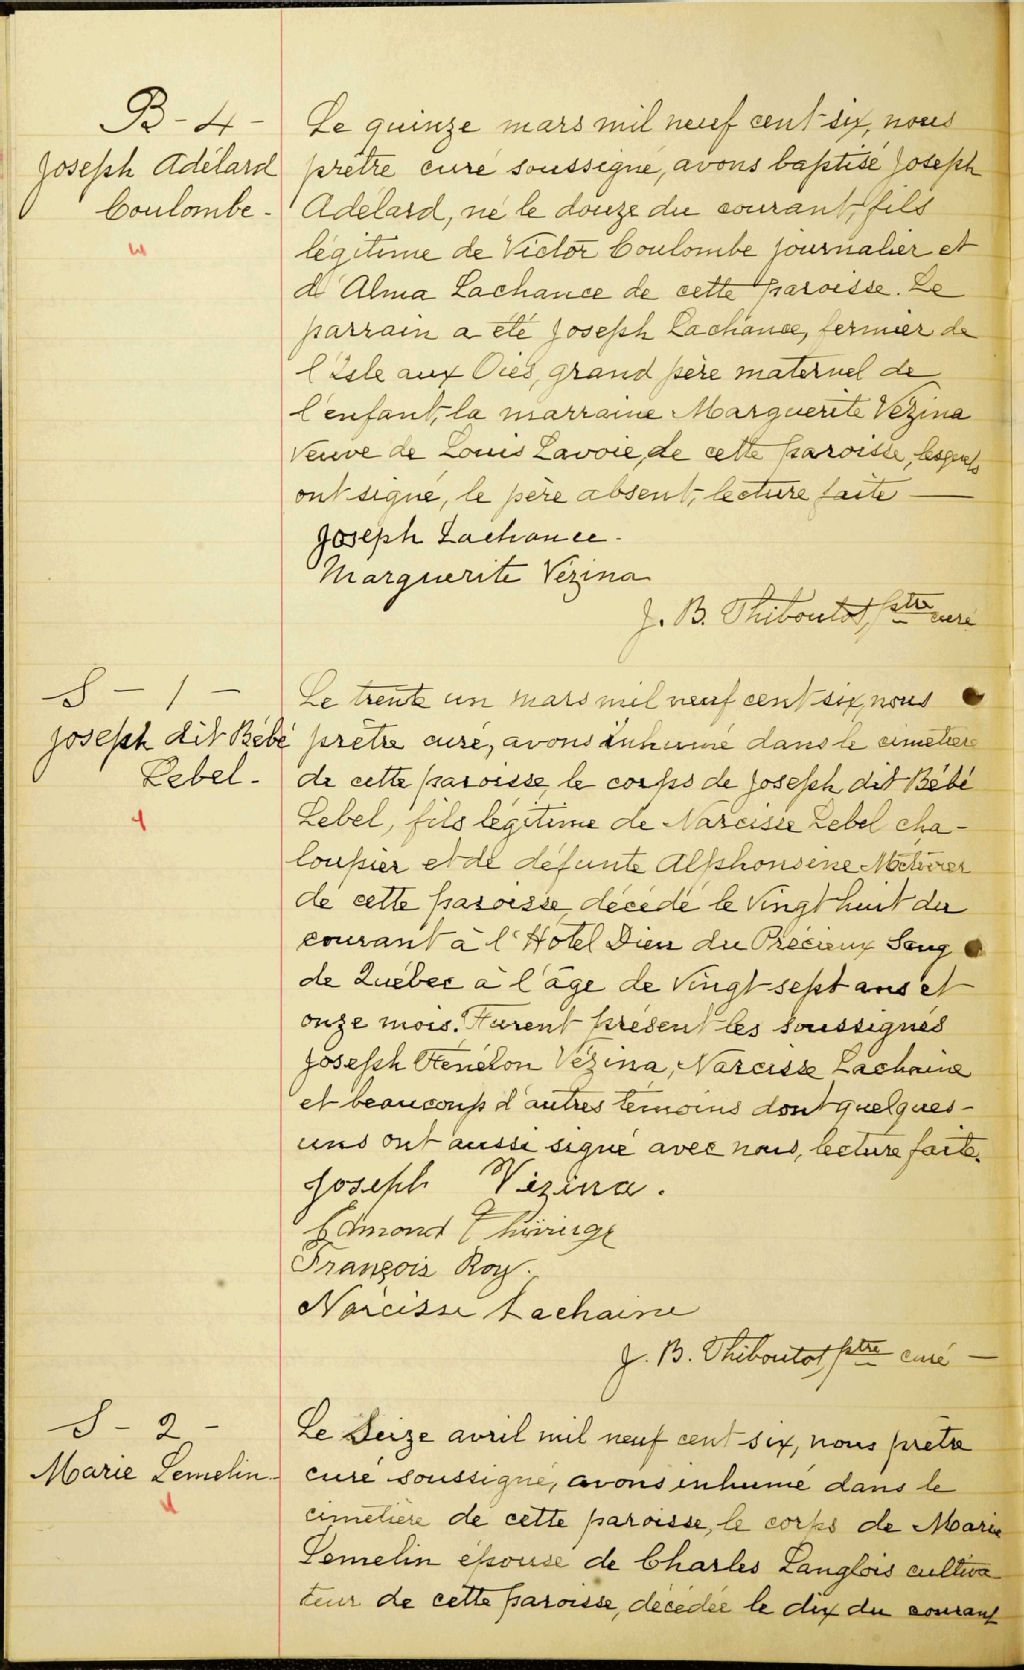 B - 4 -
Joseph Adélard
Coulombe -
Le quinze mars mil neuf cent six, nous
prêtre curé soussigné, avons baptisé Joseph
Adélard, né le douze du courant, fils
légitime de Victor Coulombe journalier et
d'Alma Lachance de cette paroisse. Le
parrain a été Joseph Lachance, fermier de
l'Isle aux Oies, grand père maternel de
l'enfant, la marraine Marguerite Vézina
veuve de Louis Lavoie, de cette paroisse, lesquels
ont signé, le père absent, lecture faite —
Joseph Lachance.
Marguerite Vézina
J. B. Thiboutot, ptre curé
S - 1 -
Joseph dit Bébé
Lebel -
Le trente un mars mil neuf cent six, nous
prêtre curé, avons inhumé dans le cimetière
de cette paroisse, le corps de Joseph dit Bébé
Lebel, fils légitime de Narcisse Lebel cha-
loupier et de défunte Alphonsine Métivier
de cette paroisse, décédé le vingt huit du
courant à l'Hôtel Dieu du Précieux Sang
de Québec à l'âge de vingt-sept ans et
onze mois. Furent présent les soussignés
Joseph Fénélon Vézina, Narcisse Lachaine
et beaucoup d'autres témoins dont quelques-
uns ont aussi signé avec nous, lecture faite.
Joseph Vézina.
Edmond
François Roy.
Narcisse Lachaine
J. B. Thiboutot, ptre curé —
S - 2 -
Marie Lemelin -
Le Seize avril mil neuf cent-six, nous prêtre
curé soussigné, avons inhumé dans le
cimetière de cette paroisse, le corps de Marie
Lemelin épouse de Charles Langlois cultiva
teur de cette paroisse, décédée le dix du courant